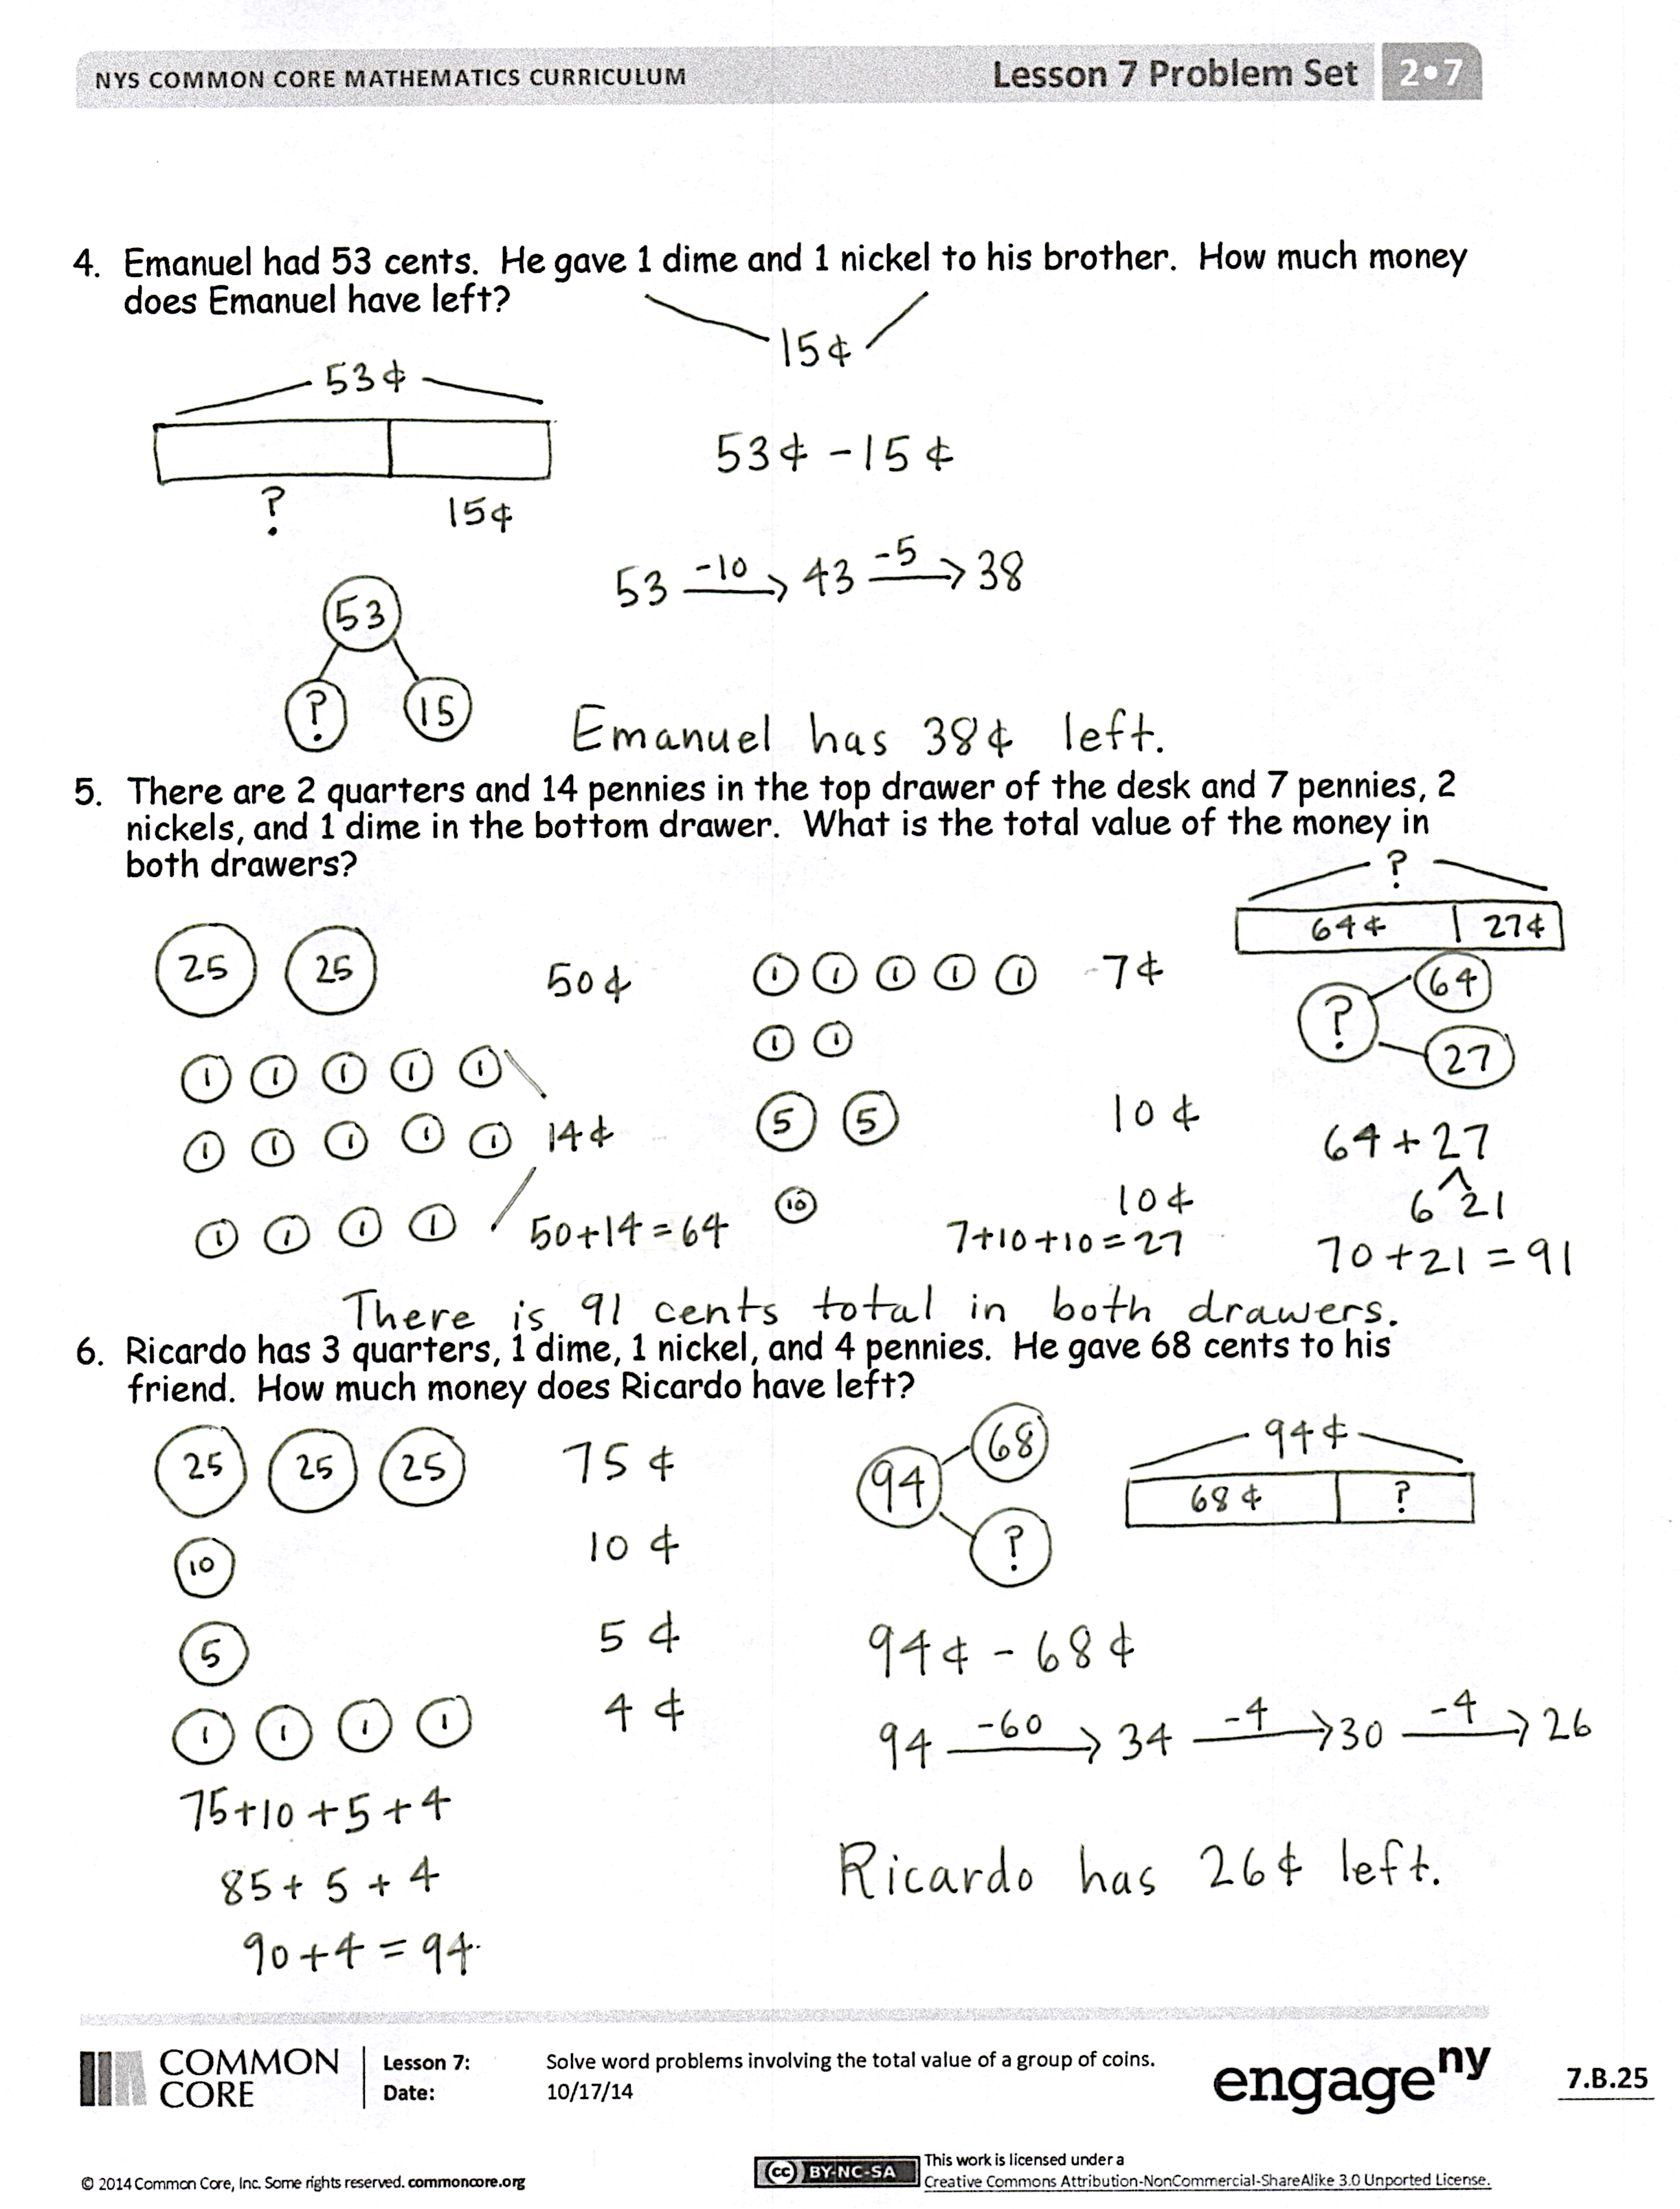 NYS COMMON CORE MATHEMATICS CURRICULUM Lesson 7 Problem Set 2•7
4. Emanuel had 53 cents. He gave 1 dime and 1 nickel to his brother. How much money
does Emanuel have left?
15¢
53¢
53¢ - 15¢
? 15¢
53 -10 → 43 -5 → 38
53
? 15
Emanuel has 38¢ left.
5. There are 2 quarters and 14 pennies in the top drawer of the desk and 7 pennies, 2
nickels, and 1 dime in the bottom drawer. What is the total value of the money in
both drawers?
?
64¢ 27¢
25 25 50¢ 1 1 1 1 1 7¢
64
?
27
1 1
1 1 1 1 1
1 1 1 1 1 14¢ 5 5 10¢
64 + 27
10 10¢
6 21
1 1 1 1 50+14=64 7+10+10=27
70+21=91
There is 91 cents total in both drawers.
6. Ricardo has 3 quarters, 1 dime, 1 nickel, and 4 pennies. He gave 68 cents to his
friend. How much money does Ricardo have left?
25 25 25 75¢
94 68
?
94¢
68¢ ?
10 10¢
5 5¢
94¢ - 68¢
1 1 1 1 4¢
94 -60 → 34 -4 → 30 -4 → 26
75+10+5+4
85+5+4
90+4=94
Ricardo has 26¢ left.
COMMON
CORE
Lesson 7: Solve word problems involving the total value of a group of coins.
Date: 10/17/14
engage ny
7.B.25
© 2014 Common Core, Inc. Some rights reserved. commoncore.org
cc BY-NC-SA
This work is licensed under a
Creative Commons Attribution-NonCommercial-ShareAlike 3.0 Unported License.